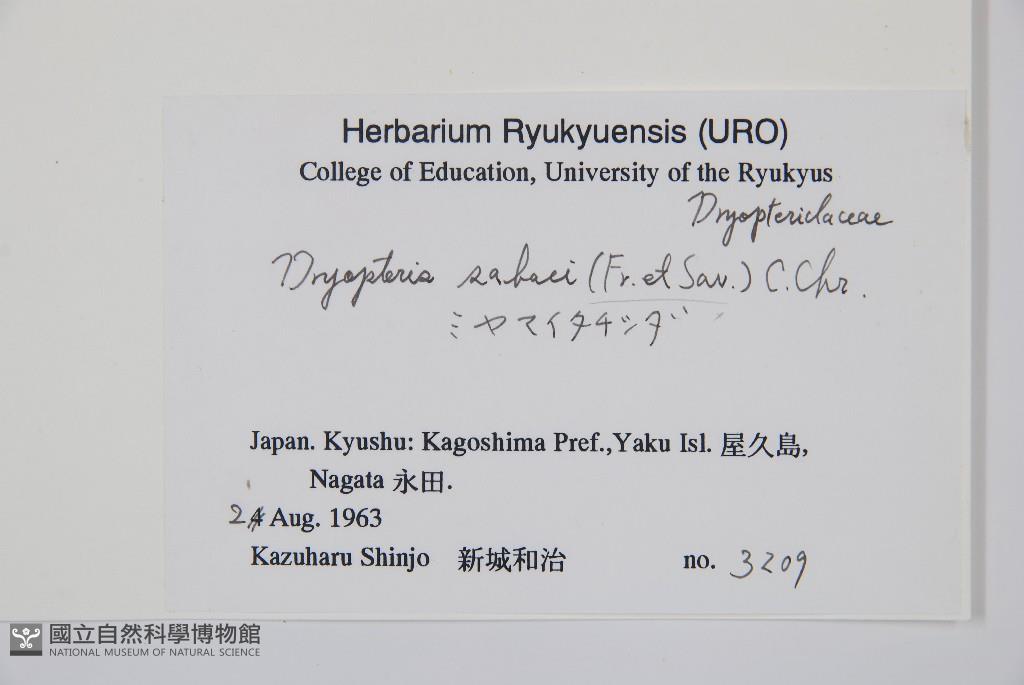 Herbarium Ryukyuensis (URO)
College of Education, University of the Ryukyus
Dryopteridaceae
Dryopteris sabaei (Fr. et Sav.) C. Chr.
ミヤマイタチシダ
Japan. Kyushu: Kagoshima Pref.,Yaku Isl. 屋久島,
Nagata 永田.
Aug. 1963
Kazuharu Shinjo 新城和治 no. 3209
國立自然科學博物館
NATIONAL MUSEUM OF NATURAL SCIENCE